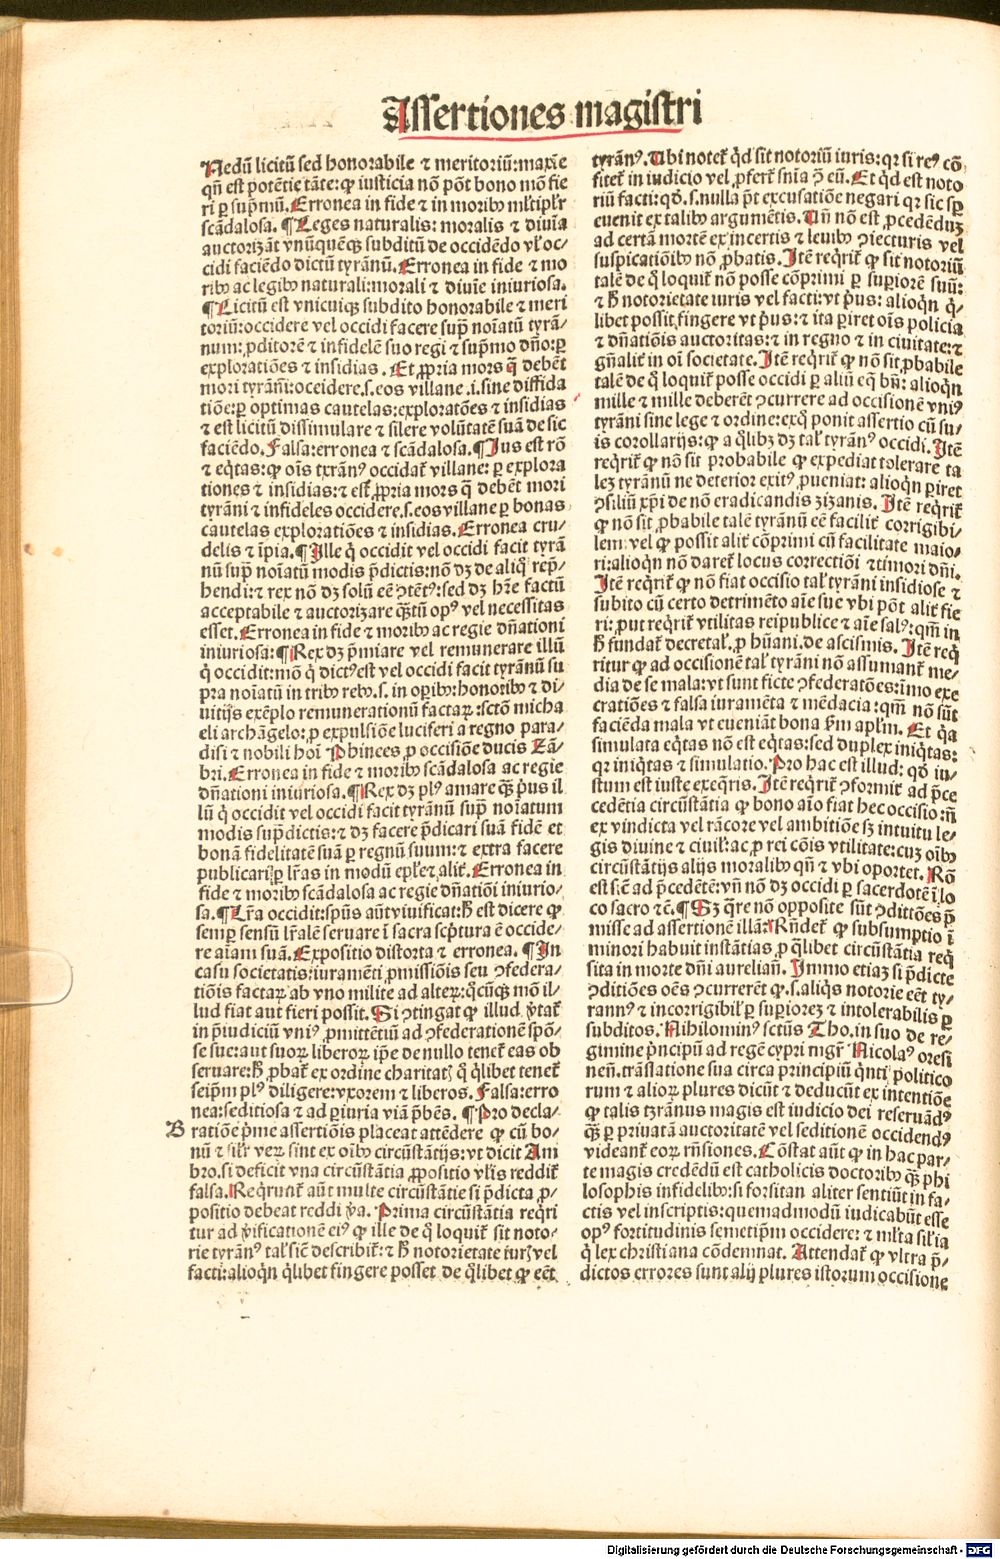 Assertiones magistri
Nedū licitū sed honorabile ⁊ meritoriū: maxīe
qn̄ est potētie tāte: ꝙ iusticia nō pōt bono mō fie
ri ꝑ sup̄mū. Erronea in fide ⁊ in moribꝰ ml̓tiplr̓
scādalosa. ¶ Leges naturalis: moralis ⁊ diuīa
auctorizāt vnūquēqꝫ subditū de occidēdo vl̓ oc⸗
cidi faciēdo dictū tyrānū. Erronea in fide ⁊ mo
ribꝰ ac legibꝰ naturali: morali ⁊ diuīe iniuriosa.
¶ Licitū est vnicuiqꝫ subdito honorabile ⁊ meri
toriū: occidere vel occidi facere sup̄ noīatū tyrā⸗
num: ꝓditorē ⁊ infidelē suo regi ⁊ sup̄mo dn̄o: ꝑ
exploratiōes ⁊ insidias. Et ꝓpria mors q̄ debēt
mori tyrāni: occidere. s. eos villane .i. sine diffida
tiōe: ꝑ optimas cautelas: exploratōes ⁊ insidias
⁊ est licitū dissimulare ⁊ silere volūtatē suā de sic
faciēdo. Falsa: erronea ⁊ scādalosa. ¶ Ius est rō
⁊ eq̄tas: ꝙ oīs tyrānꝰ occidat̄ villane: ꝑ explora
tiones ⁊ insidias: ⁊ est ꝓpria mors q̄ debēt mori
tyrāni ⁊ infideles occidere. s. eos villane ꝑ bonas
cautelas exploratiōes ⁊ insidias. Erronea cru⸗
delis ⁊ īpia. ¶ Ille q̇ occidit vel occidi facit tyrā
nū sup̄ noīatū modis p̄dictis: nō dꝫ de aliq̇ rep̄⸗
hendi: ⁊ rex nō dꝫ solū eē ꝯtētꝰ: sed dꝫ hr̄e factū
acceptabile ⁊ auctorizare qꝫtū opꝰ vel necessitas
esset. Erronea in fide ⁊ moribꝰ ac regie dn̄ationi
iniuriosa: ¶ Rex dꝫ p̄miare vel remunerare illū
q̇ occidit: mō q̇ dictꝰ est vel occidi facit tyrānū su
pra noīatū in tribꝰ rebꝰ. s. in oꝑibꝰ: honoribꝰ ⁊ di⸗
uitijs exēplo remunerationū factaꝝ: scto micha
eli archāgelo: ꝓ expulsiōe luciferi a regno para⸗
disi ⁊ nobili hoī Phinees ꝓ occisiōe ducis Zā⸗
bri. Erronea in fide ⁊ moribꝰ scādalosa ac regie
dn̄ationi iniuriosa. ¶ Rex dꝫ plꝰ amare qꝫ p̓us il
lū q̇ occidit vel occidi facit tyrānū sup̄ noīatum
modis sup̄dictis: ⁊ dꝫ facere p̄dicari suā fidē et
bonā fidelitatē suā ꝑ regnū suum: ⁊ extra facere
publicari ꝑ lr̄as in modū ep̄le ⁊ alit̄. Erronea in
fide ⁊ moribꝰ scādalosa ac regie dn̄atiōi iniurio⸗
sa. ¶ Lr̄a occidit: spūs aūt viuificat: h̄ est dicere ꝙ
semꝑ sensū lr̄alē seruare ī sacra scp̄tura ē occide⸗
re aīam suā. Expositio distorta ⁊ erronea. ¶ In
casu societatis: iuramēti ꝓmissiōis seu ꝯfedera⸗
tiōis factaꝝ ab vno milite ad alteꝝ: q̄cūqꝫ mō il⸗
lud fiat aut fieri possit. Si ꝯtingat ꝙ illud v̄tat̄
in p̄iudiciū vniꝰ ꝓmittētiū ad ꝯfederationē spō⸗
se sue: aut suoꝝ liberoꝝ ip̄e de nullo tenet̄ eas ob
seruare: h̄ ꝓbat̄ ex ordine charitatꝭ q̇ q̇libet tenet̄
seip̄m plꝰ diligere: vxorem ⁊ liberos. Falsa: erro
nea: seditiosa ⁊ ad ꝑiuria viā p̄bēs. ¶ Pro decla⸗
B ratiōe p̄me assertiōis placeat attēdere ꝙ cū bo⸗
nū ⁊ sil̓r veꝝ sint ex oībꝰ circūstātijs: vt dicit Am
bro. si deficit vna circūstātia ꝓpositio vl̓is reddit̄
falsa. Req̇runt̄ aūt multe circūstātie si p̄dicta ꝓ⸗
positio debeat reddi v̄a. Prima circūstātia reqr̓i
tur ad v̄ificationē eiꝰ ꝙ ille de q̇ loquit̄ sit noto⸗
rie tyrānꝰ tal̓ sic̄ describit̄: ⁊ h̄ notorietate iurꝭ vel
facti: alioqn̄ q̇libet fingere posset de q̇libet ꝙ eēt
tyrānꝰ. Ubi notet̄ q̇d sit notoriū iuris: qꝛ si reꝰ cō
fitet̄ in iudicio vel ꝓfert̄ snīa ꝯ eū. Et q̇d est noto
riū facti: qd̓. s. nulla p̄t excusatiōe negari qꝛ sic sꝑ
euenit ex talibꝰ argumētis. Un̄ nō est ꝓcedēduꝫ
ad certā mortē ex incertis ⁊ leuibꝰ ꝯiecturis vel
suspicatiōibꝰ nō ꝓbatis. Itē reqr̓it̄ ꝙ sit notoriū
talē de q̇ loquit̄ nō posse cōprimi ꝑ suꝑiorē suū:
⁊ h̄ notorietate iuris vel facti: vt p̓us: alioqn̄ q̇⸗
libet possit fingere vt p̓us: ⁊ ita ꝑiret oīs policia
⁊ dn̄atiōis auctoritas: ⁊ in regno ⁊ in ciuitate: ⁊
gn̄alit̄ in oī societate. Itē reqr̓it̄ ꝙ nō sit ꝓbabile
talē de q̇ loquit̄ posse occidi ꝑ aliū eq̄ bn̄: alioqn̄
mille ⁊ mille deberēt ꝯcurrere ad occisionē vniꝰ
tyrāni sine lege ⁊ ordine: exq̇ ponit assertio cū su⸗
is corollarijs: ꝙ a q̇libꝫ dꝫ tal̓ tyrānꝰ occidi. Itē
reqr̓it̄ ꝙ nō sit probabile ꝙ expediat tolerare ta
leꝫ tyrānū ne deterior exitꝰ ꝓueniat: alioqn̄ ꝑiret
ꝯsiliū xp̄i de nō eradicandis zizanis. Itē reqr̓it̄
ꝙ nō sit ꝓbabile talē tyrānū eē facilit̄ corrigibi⸗
lem: vel ꝙ possit alit̄ cōprimi cū facilitate maio⸗
ri: alioqn̄ nō daret̄ locus correctiōi ⁊ timori dn̄i.
Itē reqr̓it̄ ꝙ nō fiat occisio tal̓ tyrāni insidiose ⁊
subito cū certo detrimēto aīe sue vbi pōt alit̄ fie
ri: ꝓut reqr̓it̄ vtilitas reipublice ⁊ aīe salꝰ: qm̄ in
h̄ fundat̄ decretal̓. ꝓ hūani. de ascismis. Itē req̇
ritur ꝙ ad occisionē tal̓ tyrāni nō assumant̄ me⸗
dia de se mala: vt sunt ficte ꝯfederatōes: īmo exe
cratiōes ⁊ falsa iuramēta ⁊ mēdacia: qm̄ nō sūt
faciēda mala vt eueniāt bona ẜm apl̄m. Et q̇a
simulata eq̄tas nō est eq̄tas: sed duplex iniq̄tas:
qꝛ iniq̄tas ⁊ simulatio. Pro hac est illud: qd̓ iu⸗
stum est iuste exeq̄ris. Itē reqr̓it̄ ꝯformit̄ ad p̄ce
cedētia circūstātia ꝙ bono aīo fiat hec occisio: n̄
ex vindicta vel rācore vel ambitiōe sꝫ intuitu le⸗
gis diuine ⁊ ciuil̓: ac ꝓ rei cōis vtilitate: cuꝫ oībꝰ
circūstātijs alijs moralibꝰ qn̄ ⁊ vbi oportet. Rō
est sic̄ ad p̄cedētē: vn̄ nō dꝫ occidi ꝑ sacerdotē ī lo
co sacro ⁊c̄. ¶ Sꝫ q̄re nō opposite sūt ꝯditiōes p̄
misse ad assertionē illā: Rn̄det̄ ꝙ subsumptio ī
minori habuit instātias ꝓ q̇libet circūstātia req̇
sita in morte dn̄i aurelian̄. Immo etiaꝫ si p̄dicte
ꝯditiōes oēs ꝯcurrerēt ꝙ. s. aliq̇s notorie eēt ty⸗
rannꝰ ⁊ incorrigibil̓ ꝑ suꝑioreꝫ ⁊ intolerabilis ꝑ
subditos. Nihilominꝰ sctūs Tho. in suo de re⸗
gimine p̓ncipū ad regē cypri mgr̄ Nicolaꝰ oresī
nen̄. trāslatione sua circa principiū q̇nti politico
rum ⁊ alioꝝ plures dicūt ⁊ deducūt ex intentiōe
ꝙ talis tyrānus magis est iudicio dei reseruādꝰ
qꝫ ꝑ priuatā auctoritatē vel seditionē occidendꝰ
videant̄ eoꝝ rn̄siones. Cōstat aūt ꝙ in hac par⸗
te magis credēdū est catholicis doctoribꝰ qꝫ phi
losophis infidelibꝰ: si forsitan aliter sentiūt in fa⸗
ctis vel inscriptis: quemadmodū iudicabūt esse
opꝰ fortitudinis semetip̄m occidere: ⁊ ml̓ta sil̓ia
q̇ lex christiana cōdemnat. Attendat̄ ꝙ vltra p̄⸗
dictos errores sunt alij plures istorum occisione
Digitalisierung gefördert durch die Deutsche Forschungsgemeinschaft - DFG